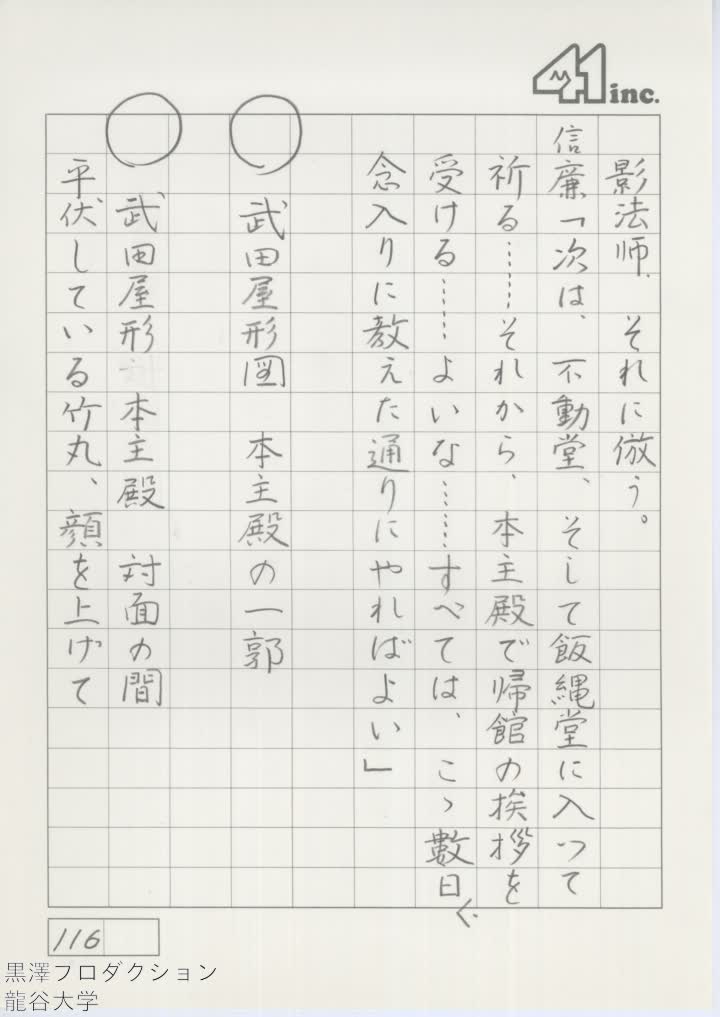 41 inc.
影法師、それに倣う。
信廉「次は、不動堂、そして飯縄堂に入って
祈る……それから、本主殿で帰館の挨拶を
受ける……よいな……すべては、こゝ數日
念入りに教えた通りにやればよい」
武田屋形図 本主殿の一郭
武田屋形 本主殿 対面の間
平伏している竹丸、顔を上げて
116
黒澤プロダクション
龍谷大学